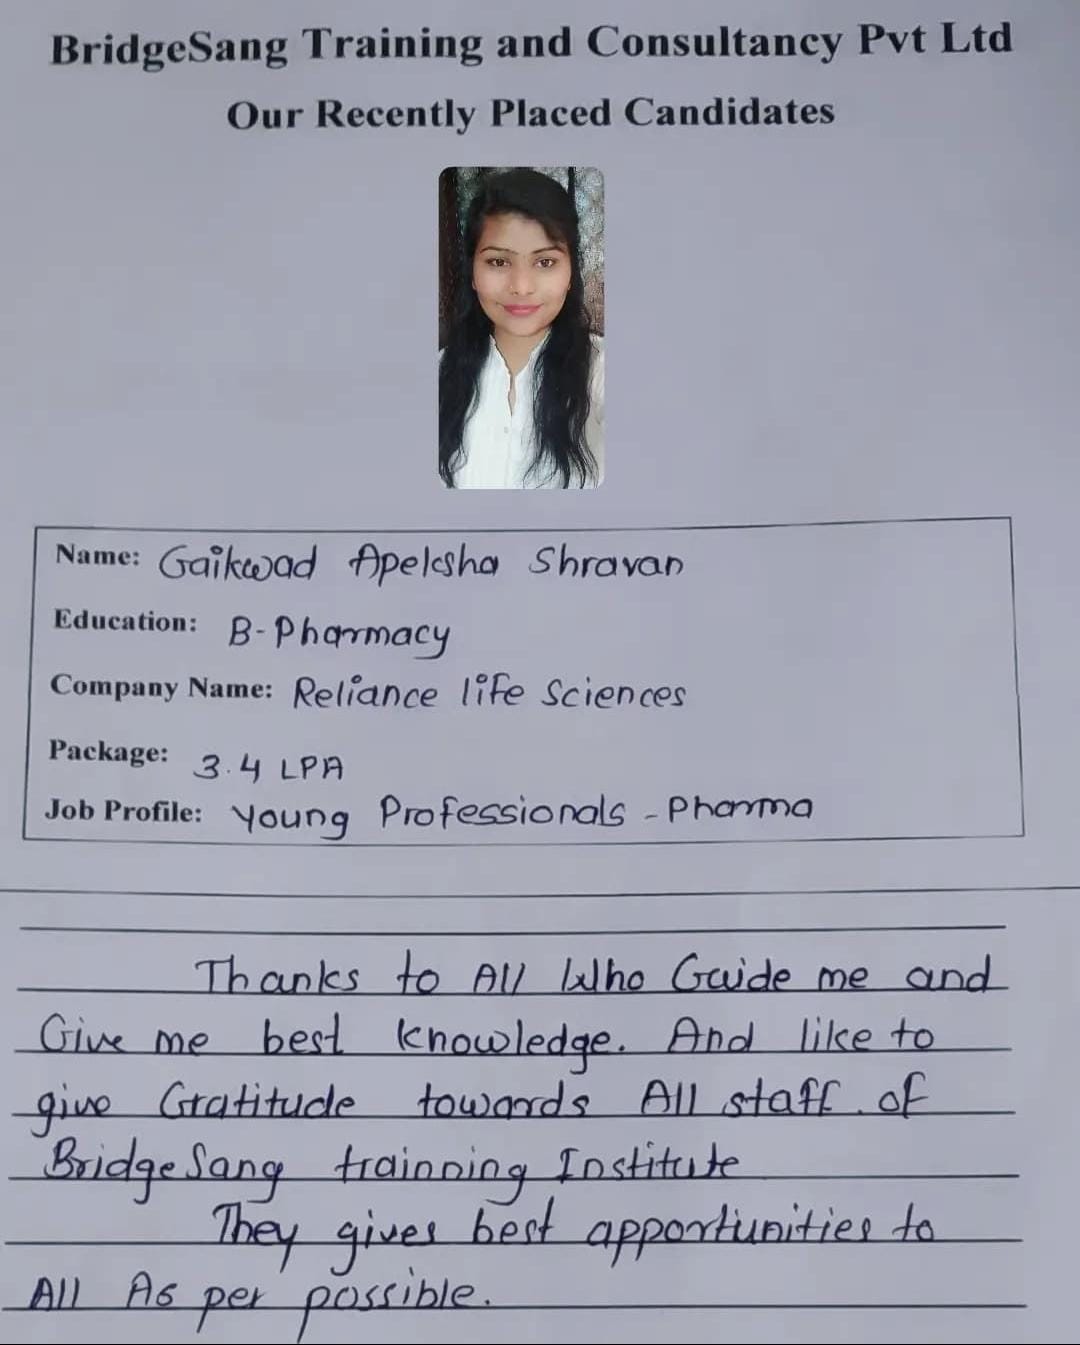 BridgeSang Training and Consultancy Pvt Ltd
Our Recently Placed Candidates
Name: Gaikwad Apeksha Shravan
Education: B-Pharmacy
Company Name: Reliance life Sciences
Package: 3.4 LPA
Job Profile: Young Professionals - Pharma
Thanks to All Who Guide me and
Give me best knowledge. And like to
give Gratitude towards All staff of
BridgeSang trainning Institute
They gives best apportiunities to
All As per possible.